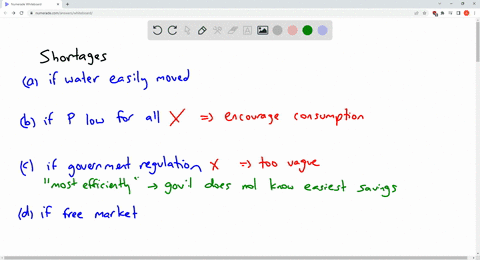 numerade.com/answers/whiteboard/
Shortages
(a) if water easily moved
(b) if P low for all X ⇒ encourage consumption
(c) if government regulation X ⇒ too vague
"most efficiently" → gov't does not know easiest savings
(d) if free market